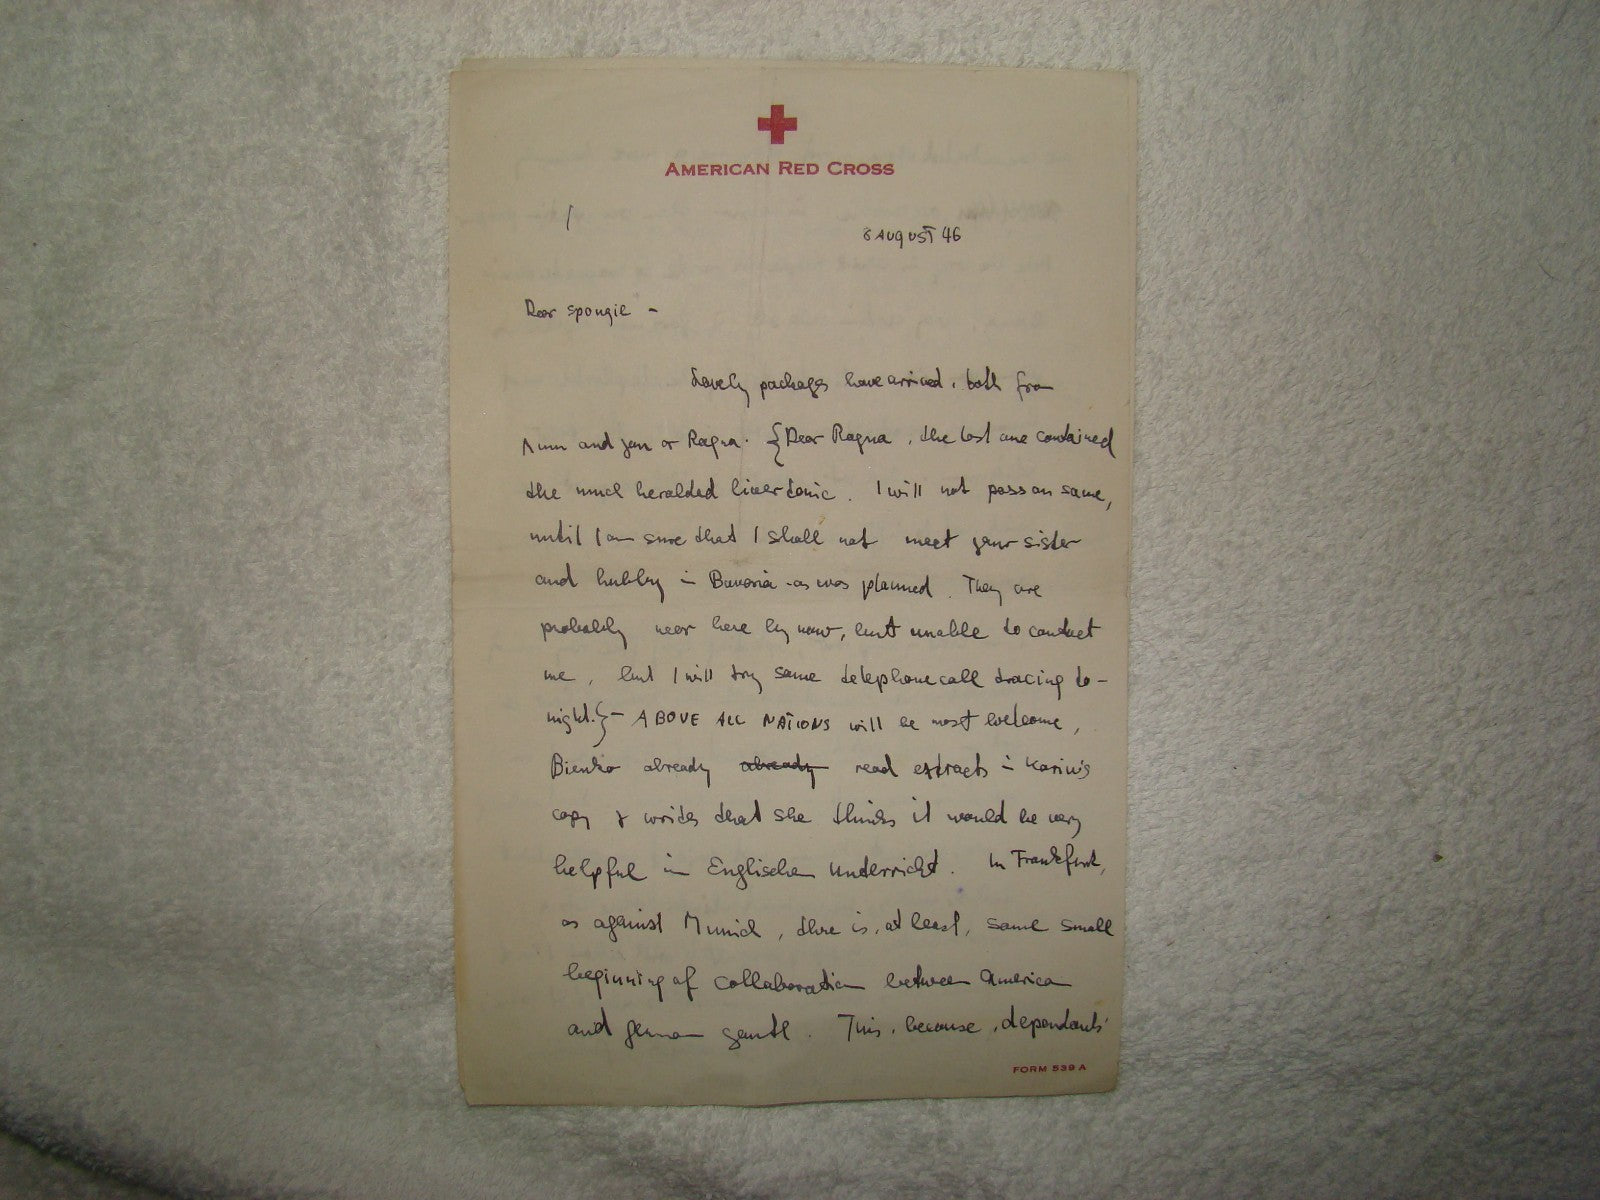 AMERICAN RED CROSS
1
8 AUGUST 46
Dear Spongie -
Lovely packages have arrived, both from
and you or Ragna. {Dear Ragna, the last one contained
the much heralded liver tonic. I will not pass on same,
until I am sure that I shall not meet your sister
and hubby in Bavaria - as was planned. They are
probably near here by now, but unable to contact
me, but I will try some telephone call tracing to-
night.} - ABOVE ALL NATIONS will be most welcome,
Bienko already already read extracts in Karin's
copy & writes that she thinks it would be very
helpful in Englischen Unterricht. In Frankfurt,
as against Munich, there is, at least, some small
beginning of collaboration between America
and german youth. This, because, dependants'
FORM 539 A